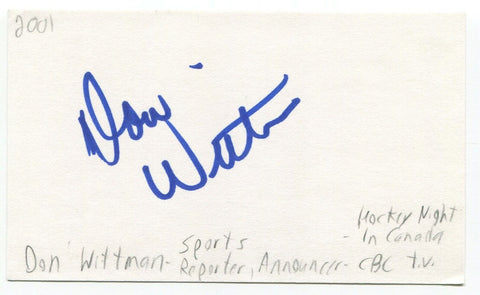 2001
Don Wittman
Hockey Night
- In Canada
Sports
Don Wittman - Reporter, Announcer - CBC T.V.